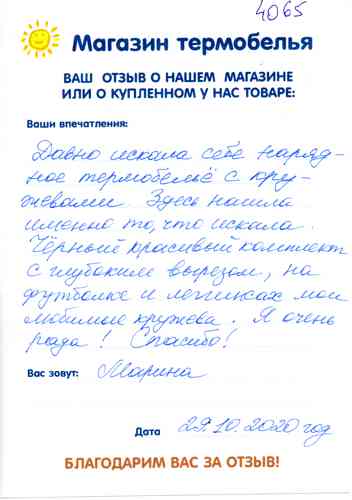 4065
Магазин термобелья
ВАШ ОТЗЫВ О НАШЕМ МАГАЗИНЕ
ИЛИ О КУПЛЕННОМ У НАС ТОВАРЕ:
Ваши впечатления:
Давно искала себе наряд-
ное термобельё с кру-
жевами. Здесь нашла
именно то, что искала.
Чёрный красивый комплект
с глубоким вырезом, на
футболке и легинсах мои
любимые кружева. Я очень
рада! Спасибо!
Вас зовут: Марина
Дата 29.10.2020 год
БЛАГОДАРИМ ВАС ЗА ОТЗЫВ!